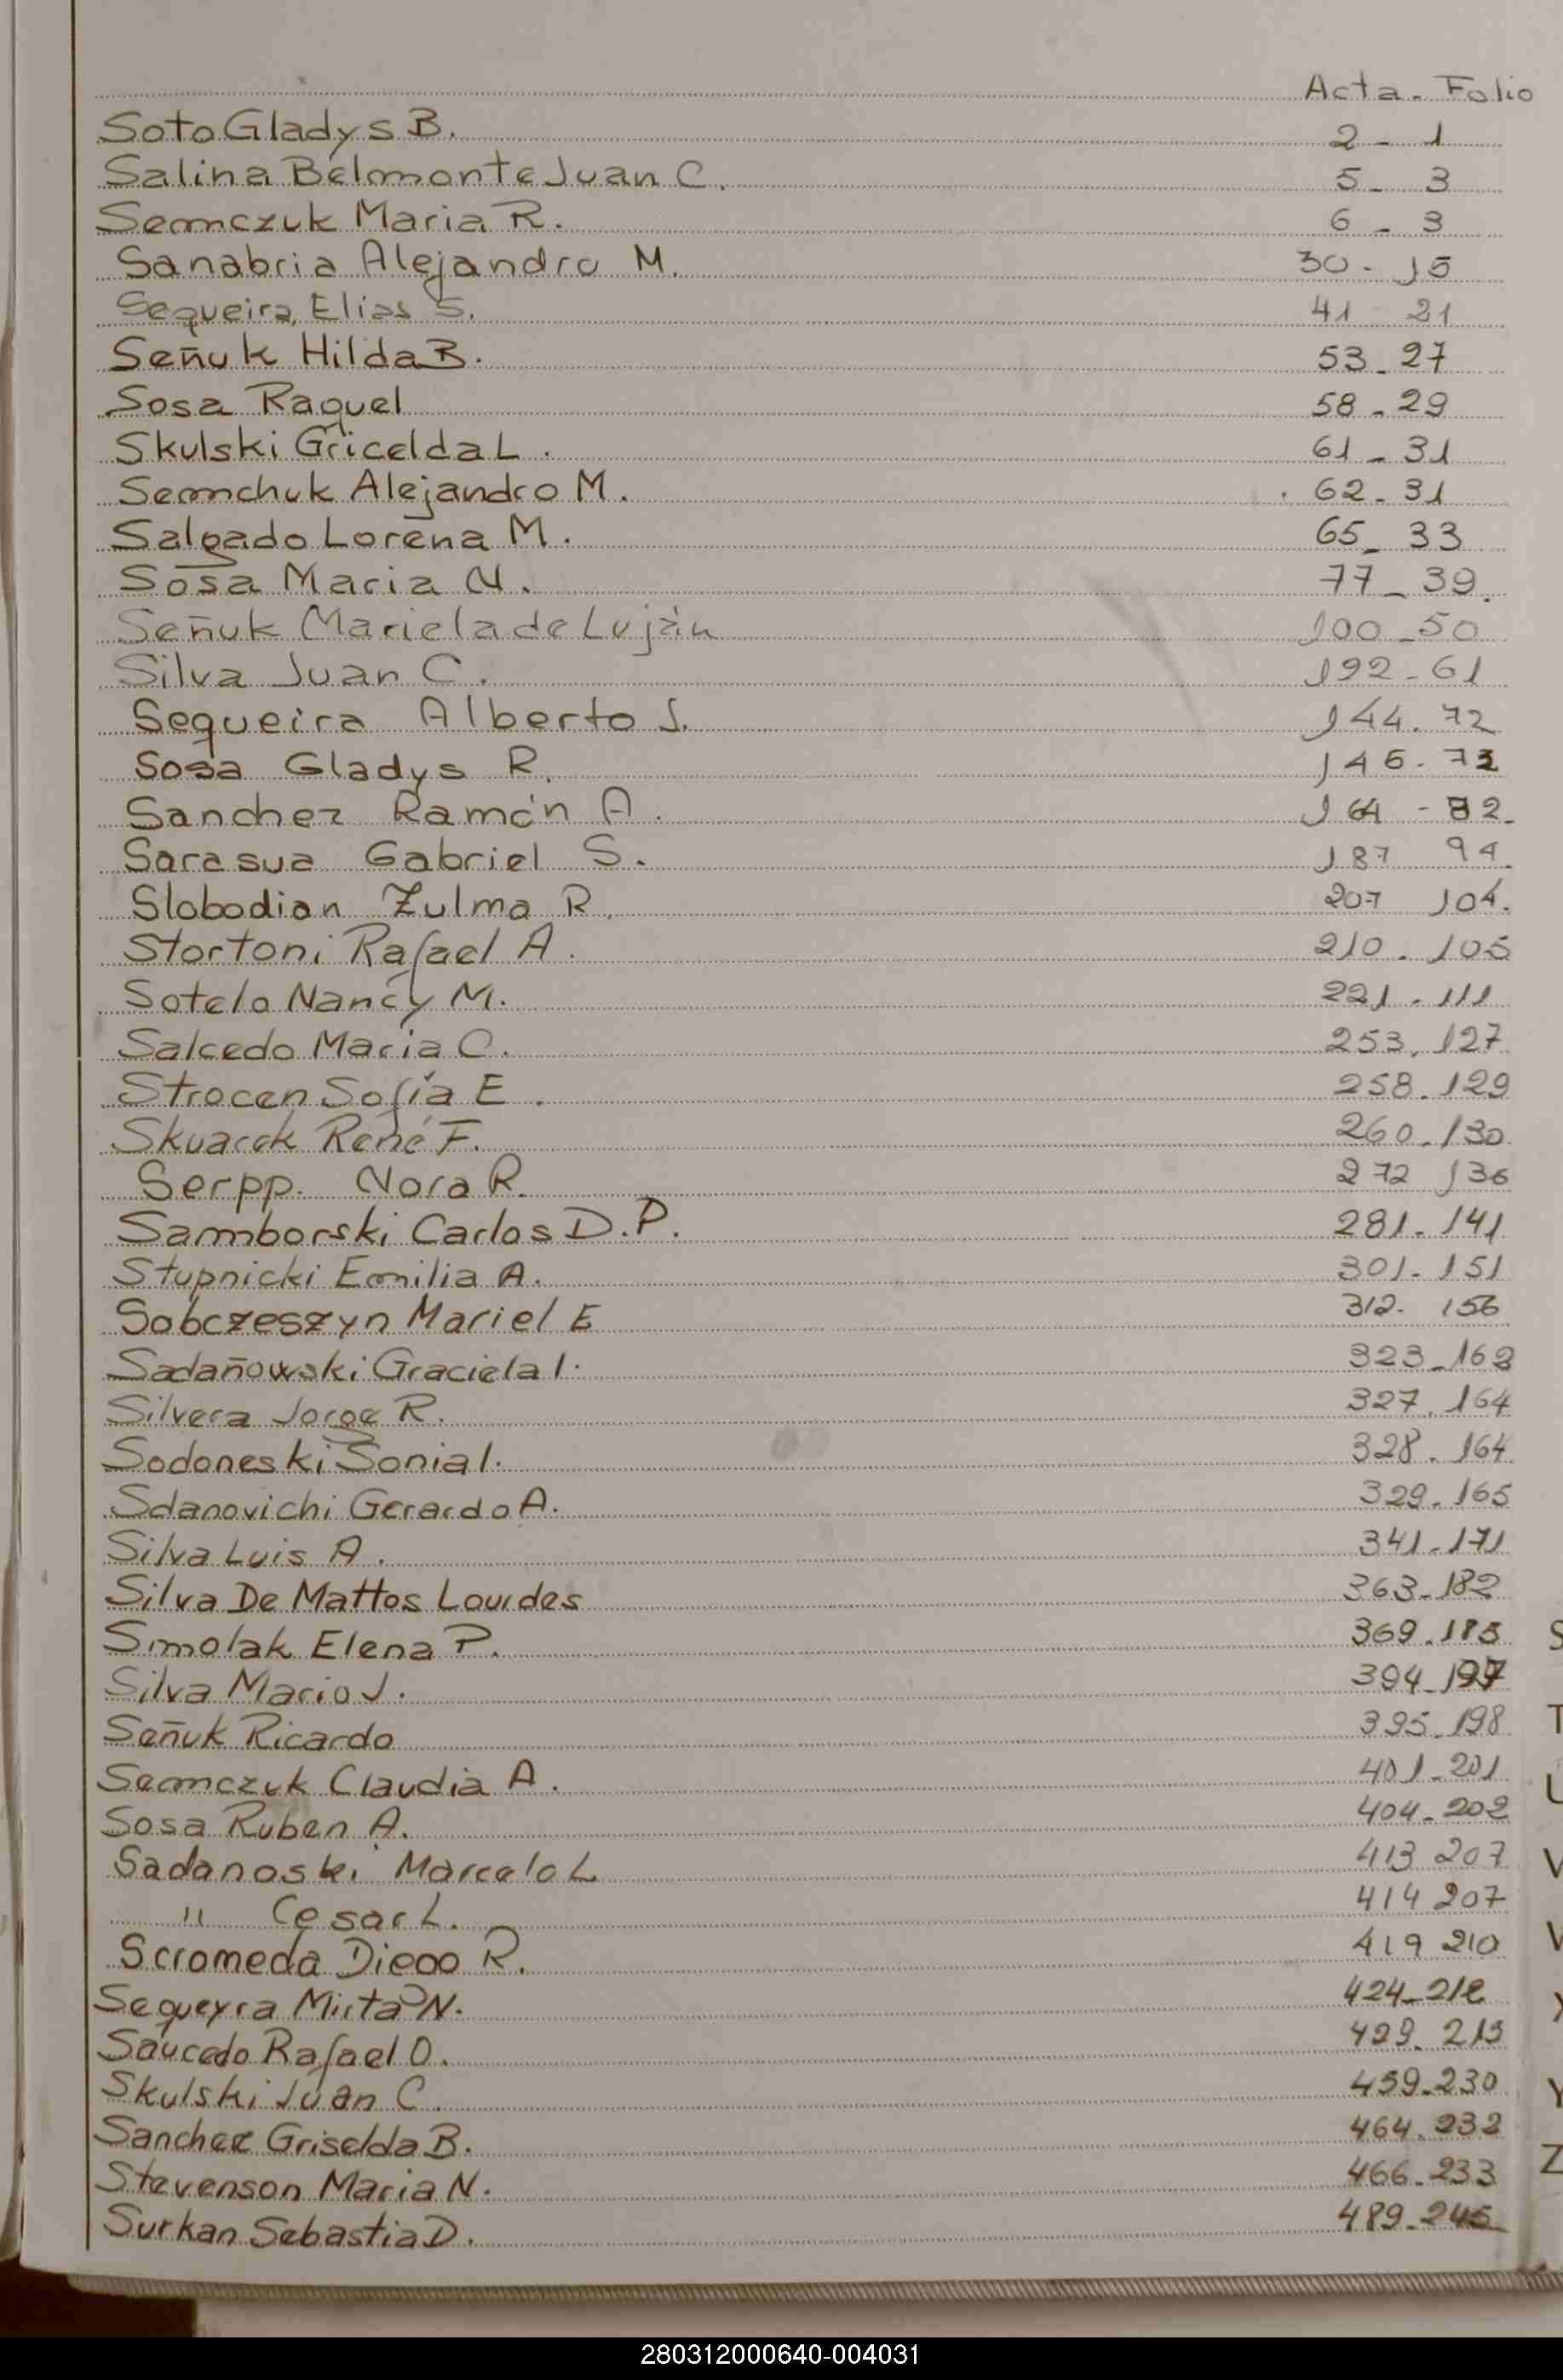 Acta - Folio
Soto Gladys B. 2 - 1
Salina Belmonte Juan C. 5 - 3
Semczuk Maria R. 6 - 3
Sanabria Alejandro M. 30 - 15
Sequeira, Elias S. 41 - 21
Señuk Hilda B. 53 - 27
Sosa Raquel 58 - 29
Skulski Gricelda L. 61 - 31
Semchuk Alejandro M. 62 - 31
Salgado Lorena M. 65 - 33
Sosa Maria N. 77 - 39.
Señuk Mariela de Luján 100 - 50
Silva Juan C. 122 - 61
Sequeira Alberto J. 144. 72
Sosa Gladys R. 146. 73
Sanchez Ramón A. 164 - 82.
Sarasua Gabriel S. 187 94.
Slobodian Zulma R. 207 104.
Stortoni Rafael A. 210. 105
Sotelo Nancy M. 221. 111
Salcedo Maria C. 253. 127
Strocen Sofía E. 258. 129
Skuarek René F. 260. 130
Serpp. Nora R. 272 136
Samborski Carlos D.P. 281. 141
Stupnicki Emilia A. 301. 151
Sobczeszyn Mariel E 312. 156
Sadañowski Graciela I. 323 - 162
Silvera Jorge R. 327. 164
Sodoneski Sonia I. 328. 164
Sdanovichi Gerardo A. 329. 165
Silva Luis A. 341. 171
Silva De Mattos Lourdes 363 - 182
Smolak Elena P. 369. 185
Silva Mario J. 394 - 197
Señuk Ricardo 395 - 198
Semczuk Claudia A. 401 - 201
Sosa Ruben A. 404 - 202
Sadanoski Marcelo L 413 207
" Cesar L. 414 207
Scromeda Diego R. 419 210
Sequeyra Mirta N. 424 - 212
Saucedo Rafael O. 429. 215
Skulski Juan C. 459. 230
Sanchez Griselda B. 464. 232
Stevenson Maria N. 466. 233
Surkan Sebastia D. 489. 245
S
T
U
V
X
Y
Z
280312000640-004031